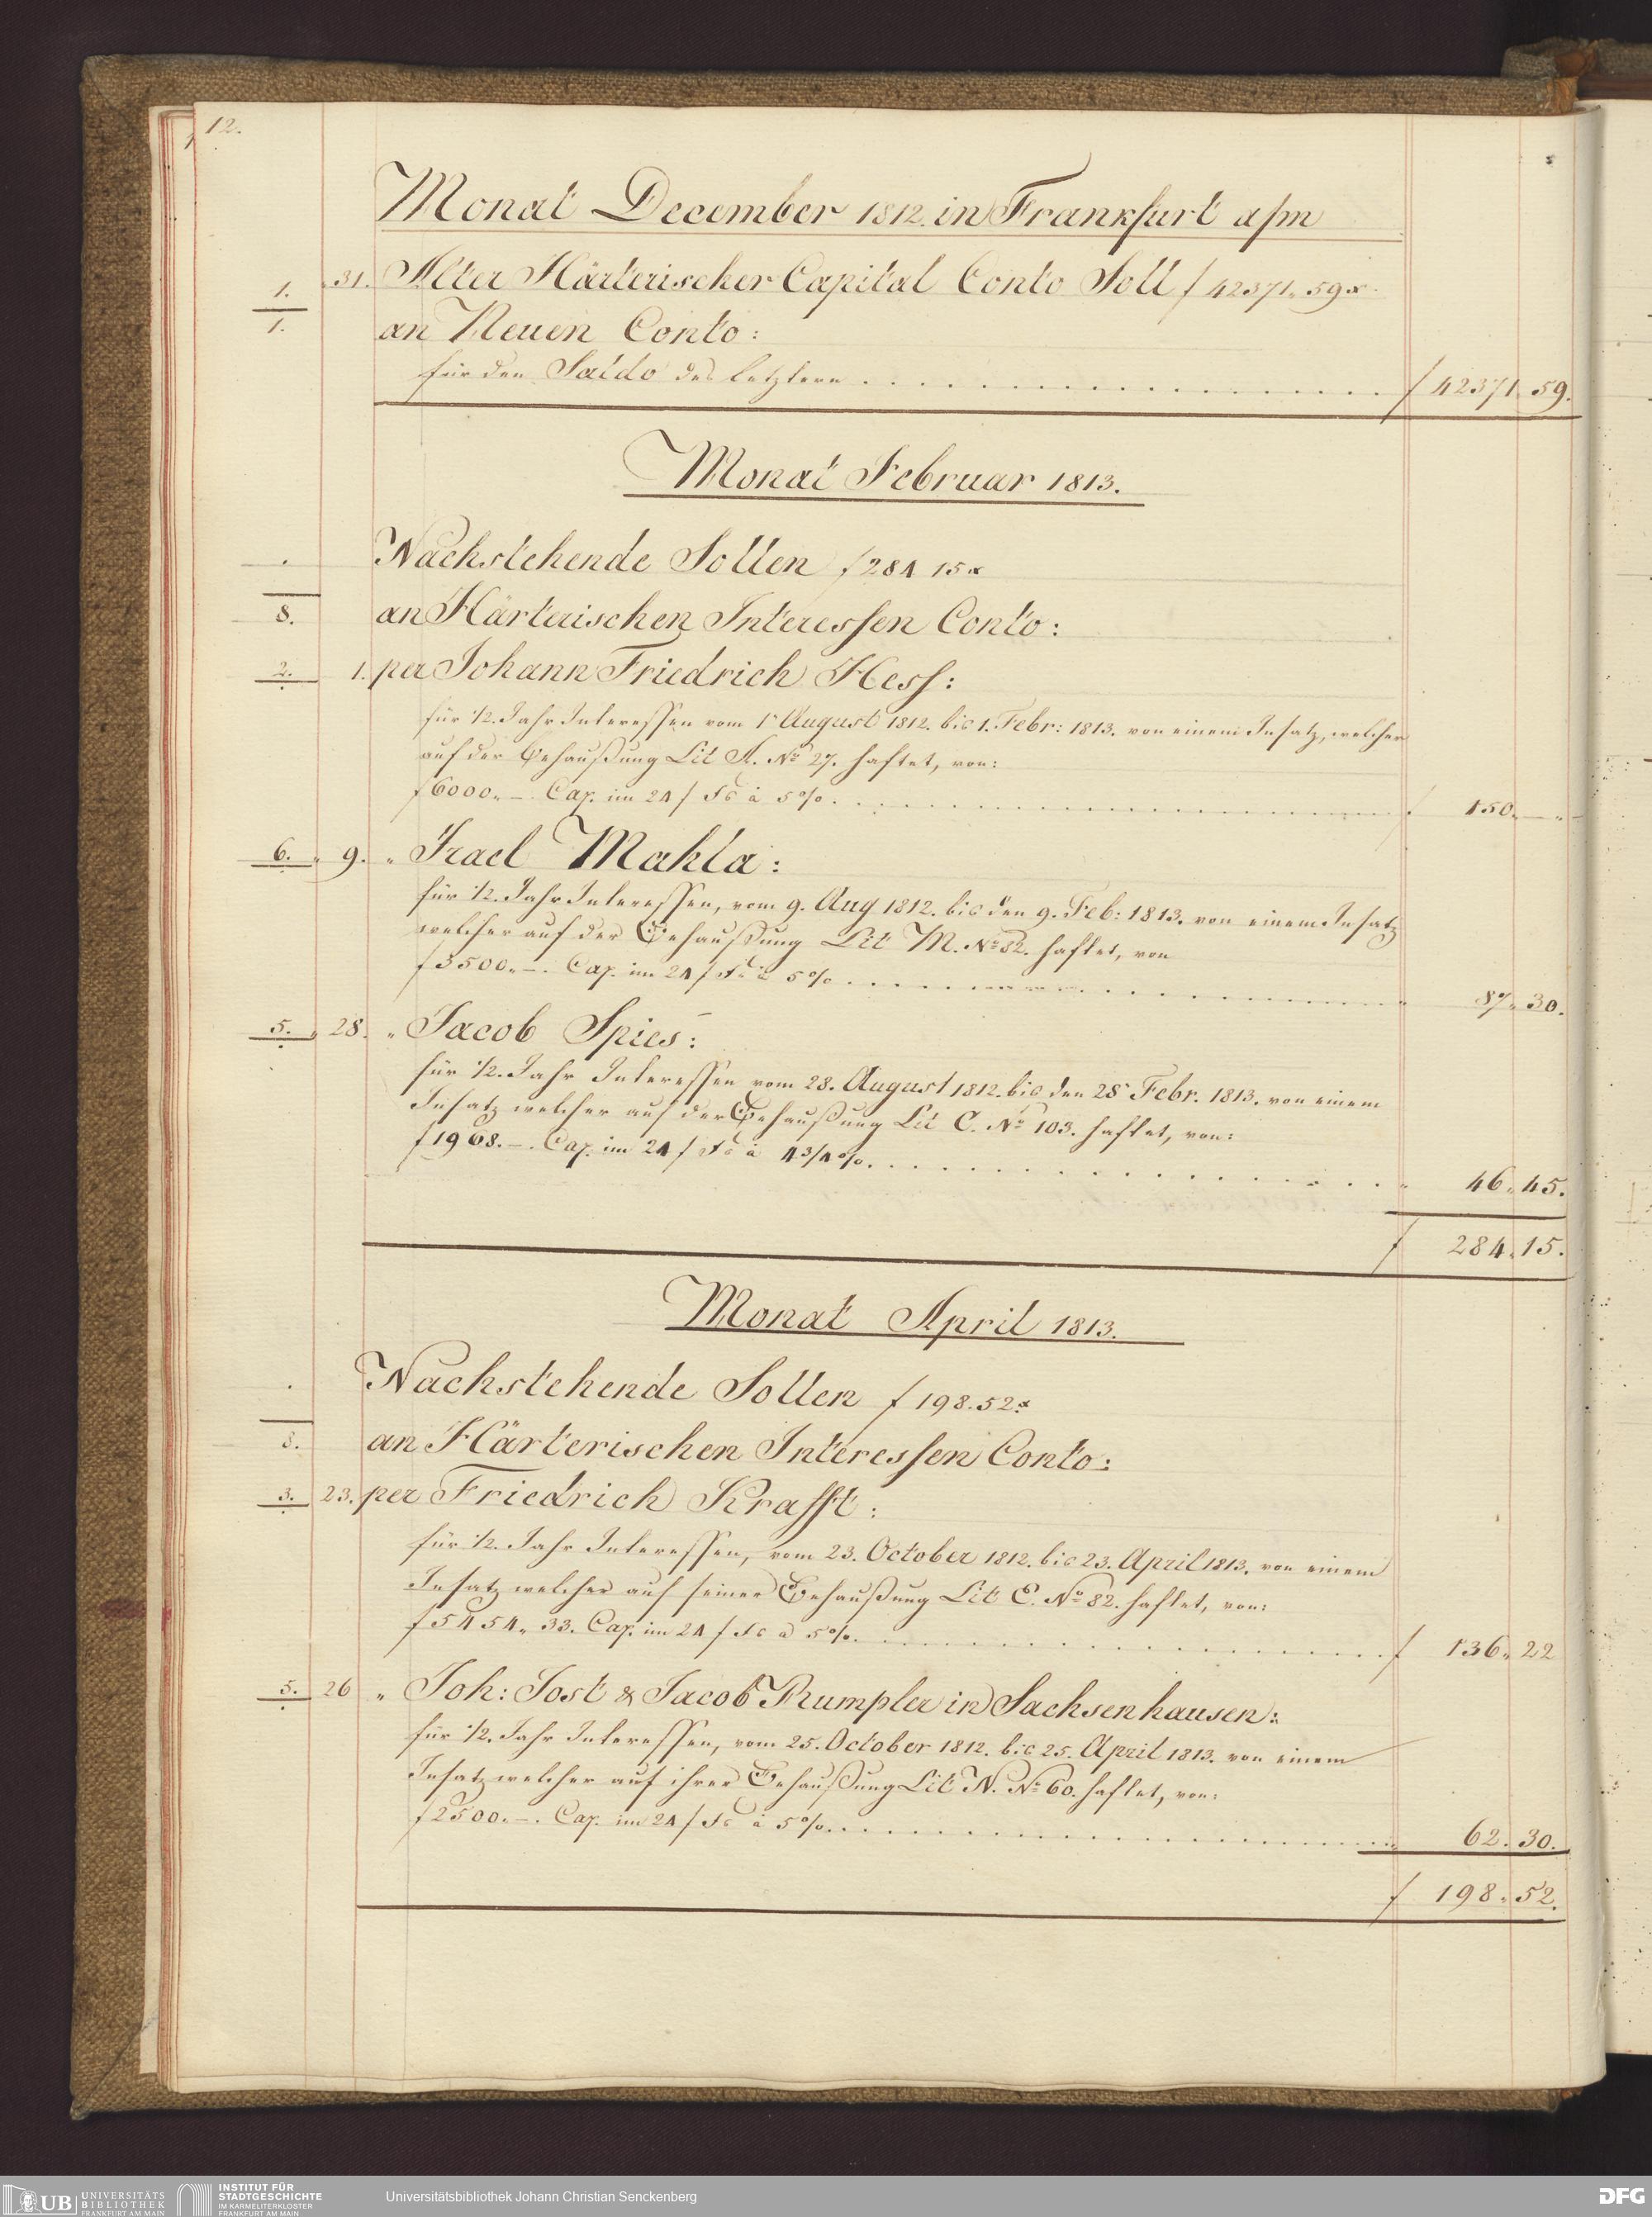 12.
Monat December 1812. in Frankfurt a/m
1. 31. Alter Härterischer Capital Conto Soll f 42371„ 59x.
1. an Neuen Conto:
für den Saldo des letztern . . . . . . . . . . . . . . . . . f 42371 59.
Monat Februar 1813.
Nachstehende Sollen f 284 15x
8. an Härterischen Interessen Conto:
2. 1. per Johann Friedrich Hess:
für 1/2. Jahr Interessen vom 1t August 1812. bis 1. Febr: 1813. von einem Insatz, welcher
auf der Behaußung Lit A. No 27. haftet, von:
f 6000„ –. Cap. im 24 f Fs à 5%. . . . . . . . . . . . . . . . . . f 150„ — „
6. „ 9. „ Izael Mahla:
für 1/2. Jahr Interessen, vom 9. Aug 1812. bis den 9. Feb: 1813. von einem Insatz
welcher auf der Behaußung Lit M. No 82. haftet, von
f 3500„ –. Cap. im 24 f Fs à 5% . . . . . . . . . . . . . . . . . „ 87„ 30.
5. „ 28. „ Jacob Spies:
für 1/2. Jahr Interessen vom 28. August 1812. bis den 28t Febr. 1813. von einem
Insatz welcher auf der Behaußung Lit C. No 103. haftet, von:
f 1968. –. Cap. im 24 f Fs à 4 3/4 %. . . . . . . . . . . . . . . . „ 46„ 45.
f 284„ 15.
Monat April 1813.
Nachstehende Sollen f 198. 52x
8. an Härterischen Interessen Conto:
3. 23. per Friedrich Krafft:
für 1/2. Jahr Interessen, vom 23. October 1812. bis 23. April 1813. von einem
Insatz welcher auf seiner Behaußung Lit E. No 82. haftet, von:
f 5454„ 33. Cap. im 24 f Fs à 5%. . . . . . . . . . . . . . . . . f 136„ 22
5. 26 „ Joh: Jost & Jacob Rumpler in Sachsenhausen:
für 1/2. Jahr Interessen, vom 25. October 1812. bis 25. April 1813. von einem
Insatz welcher auf ihrer Behaußung Lit N. No 60. haftet, von:
f 2500. –. Cap. im 24 f Fs à 5%. . . . . . . . . . . . . . . . . „ 62. 30.
f 198„ 52.
UB UNIVERSITÄTS BIBLIOTHEK FRANKFURT AM MAIN
INSTITUT FÜR STADTGESCHICHTE IM KARMELITERKLOSTER FRANKFURT AM MAIN
Universitätsbibliothek Johann Christian Senckenberg
DFG